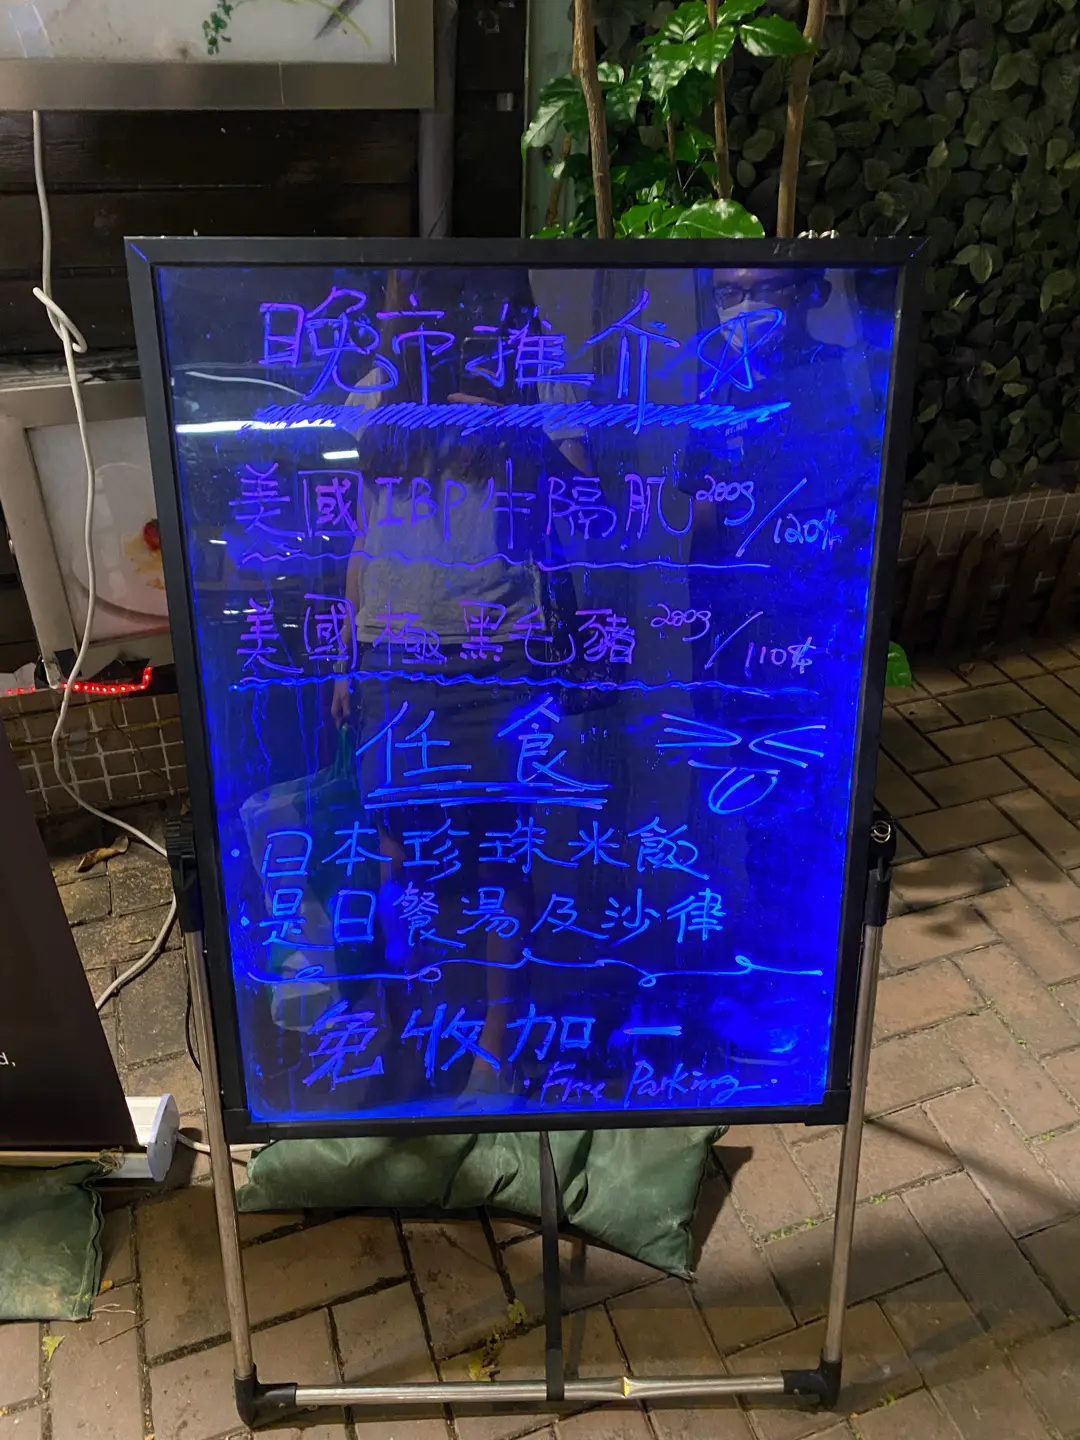 晚市推介
美國IBP牛隔肌 200g/120.-
美國極黑毛豬 200g/110.-
任食...
·日本珍珠米飯
·是日餐湯及沙律
免收加一
·Free Parking·